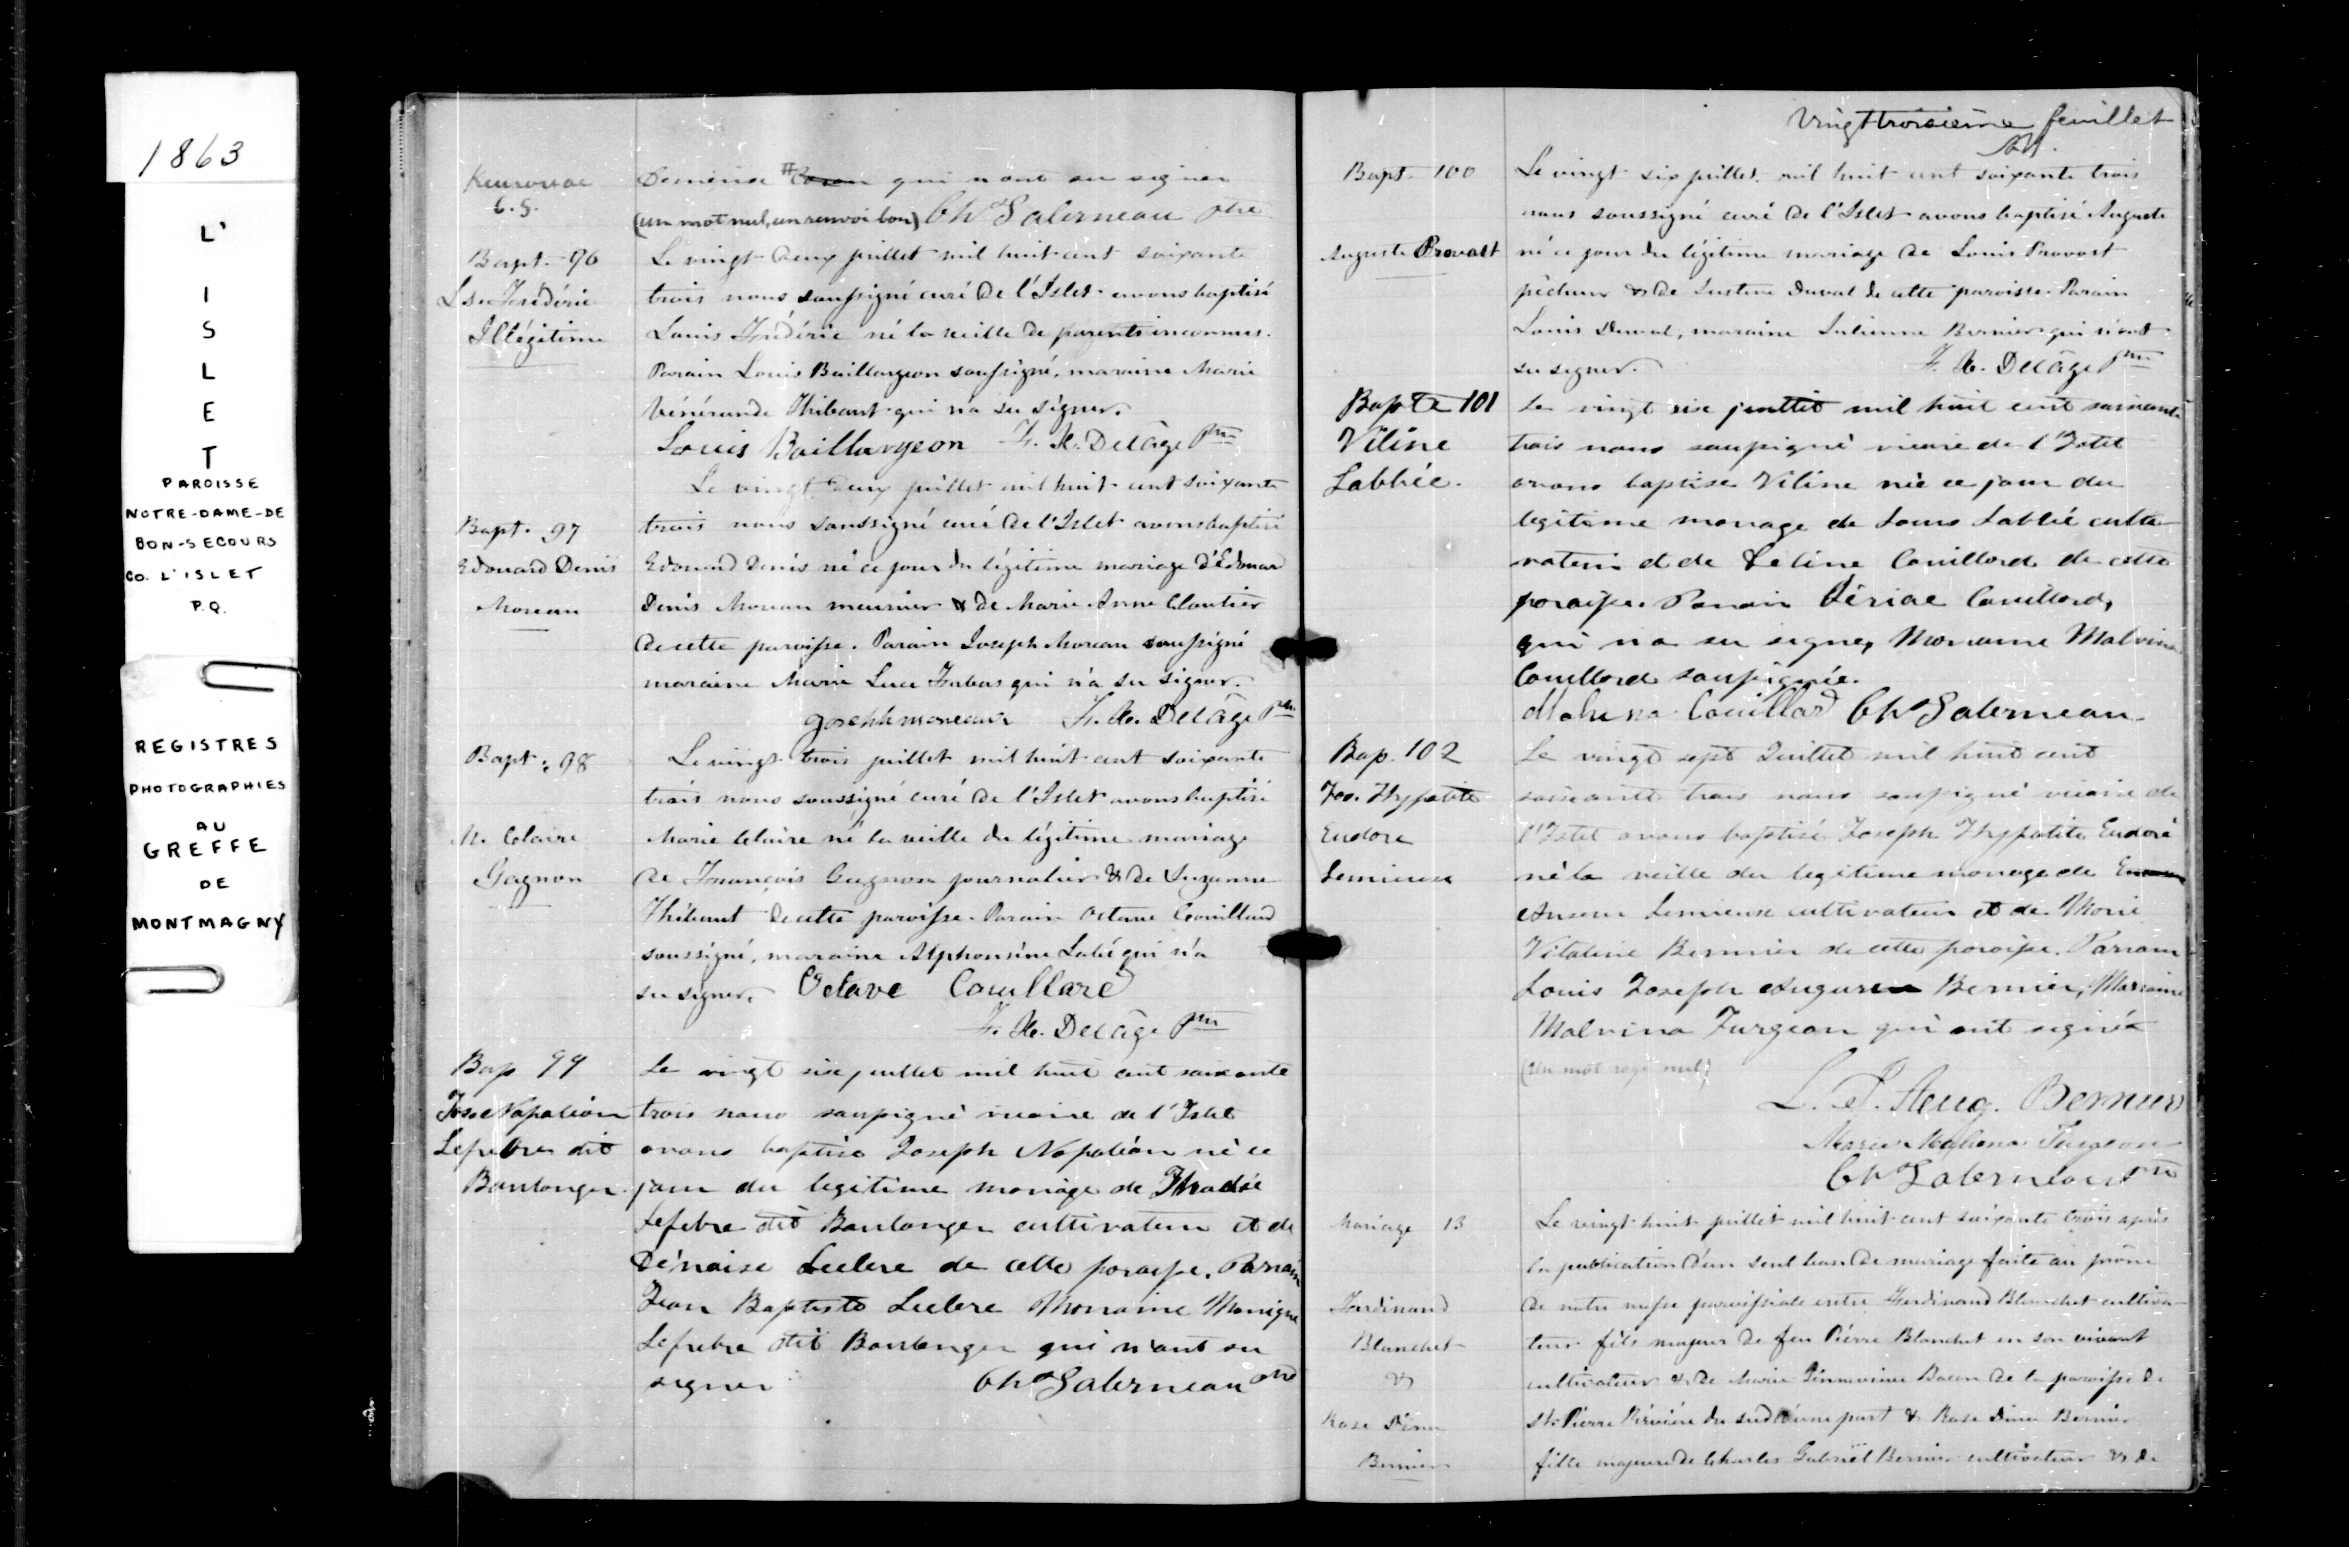 1863
L'
I
S
L
E
T
PAROISSE
NOTRE-DAME-DE
BON-SECOURS
CO. L'ISLET
P.Q.
REGISTRES
PHOTOGRAPHIES
AU
GREFFE
DE
MONTMAGNY
qui n'ont su signer
(un mot nul, un renvoi bon) Chs Galerneau ptre
Bapt. 96
Ls Frédéric
Illégitime
Le vingt deux juillet mil huit cent soixante
trois nous soussigné curé de l'Islet avons baptisé
Louis Frédéric né la veille de parents inconnus.
Parain Louis Baillargeon soussigné, maraine Marie
Vénérande Thibaut qui n'a su signer.
Louis Baillargeon F. X. Delâge Ptre
Bapt. 97
Edouard Denis
Moreau
Le vingt deux juillet mil huit cent soixante
trois nous soussigné curé de l'Islet avons baptisé
Edouard Denis né ce jour du légitime mariage d'Edouard
Denis Moreau meunier & de Marie Anne Cloutier
de cette paroisse. Parain Joseph Moreau soussigné
maraine Marie Luce qui n'a su signer.
Joseph moreau F. X. Delâge Ptre
Bapt. 98
M. Claire
Gagnon
Le vingt trois juillet mil huit cent soixante
trois nous soussigné curé de l'Islet avons baptisé
Marie Claire né la veille du légitime mariage
de François Gagnon journalier & de Suzanne
Thibaut de cette paroisse. Parain Octave Couillard
soussigné, maraine Alphonsine Labé qui n'a
su signer. Octave Couillard
F. X. Delâge Ptre
Bap 99
Jose Napoléon
Lefebre dit
Boulanger
Le vingt six juillet mil huit cent soixante
trois nous soussigné vicaire de l'Islet
avons baptisé Joseph Napoléon né ce
jour du legitime mariage de Thadée
Lefebre dit Boulanger cultivateur et de
Démaise Leclerc de cette paroisse. Parrain
Jean Baptiste Leclerc Marraine Monique
Lefebre dit Boulanger qui n'ont su
signer Chs Galerneau Ptre
Vingt troisième feuillet
Bapt. 100
Auguste Provost
Le vingt six juillet mil huit cent soixante trois
nous soussigné curé de l'Islet avons baptisé Auguste
né ce jour du légitime mariage de Louis Provost
pêcheur & de Justine Duval de cette paroisse. Parain
Louis Duval, maraine Julienne Bernier qui n'ont
su signer. F. X. Delâge Ptre
Bapte 101
Viline
Labbée.
Le vingt six juillet mil huit cent soixante
trois nous soussigné vicaire de l'Islet
avons baptisé Viline née ce jour du
legitime mariage de Louis Labbé culti-
vateur et de Céline Couillard de cette
paroisse. Parrain Couillard,
qui n'a su signer, Marraine Malvina
Couillard soussignée.
Malvina Couillard Chs Galerneau
Bap. 102
Jos. Hypolite
Eudore
Lemieux
Le vingt sept Juillet mil huit cent
soixante trois nous soussigné vicaire de
l'Islet avons baptisé Joseph Hypolite Eudore
né la veille du legitime mariage de
Lemieux cultivateur et de Marie
Vitaline Bernier de cette paroisse. Parrain
Louis Joseph Bernier, Marraine
Malvina Turgeon qui ont signé
(Un mot rayé nul)
L. J. Aug. Bernier
Marie Malvina Turgeon
Chs Galerneau Ptre
Mariage 13
Ferdinand
Blanchet
&
Rose Dina
Bernier
Le vingt huit juillet mil huit cent soixante trois après
la publication d'un seul ban de mariage faite au prône
de notre messe paroissiale entre Ferdinand Blanchet cultiva-
teur fils majeur de feu Pierre Blanchet en son vivant
cultivateur & de Marie Bacon de la paroisse de
St. Pierre Rivière du sud d'une part & Rose Dina Bernier
fille majeure de Charles Gabriel Bernier cultivateur & de